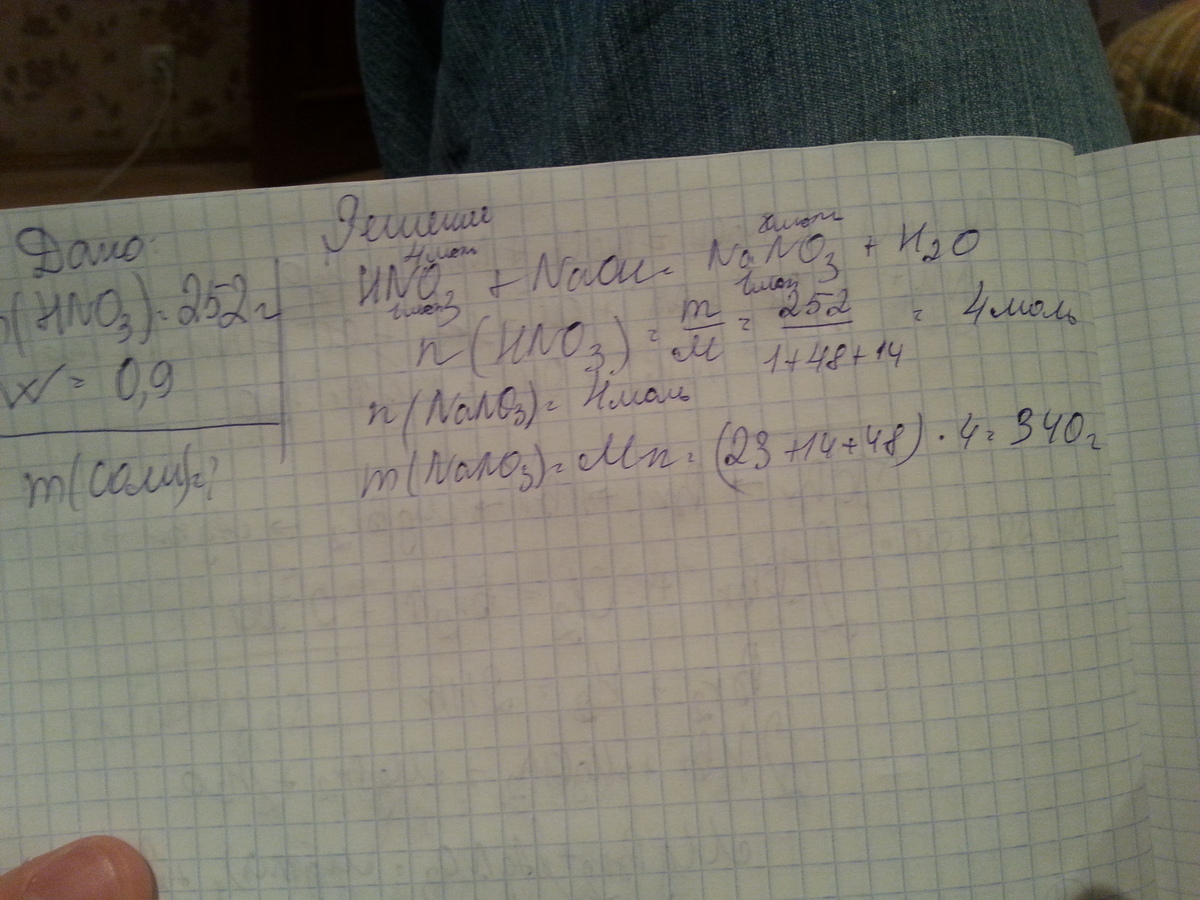 Дано:
(HNO3) = 252г
W = 0,9
m(соли)=?
Решение
4моль
HNO3 + NaOH = NaNO3 + H2O
1моль 1моль
n(HNO3) = m/M = 252/1+48+14 = 4моль
n(NaNO3) = 4моль
m(NaNO3) = Mn = (23+14+48)·4 = 340г